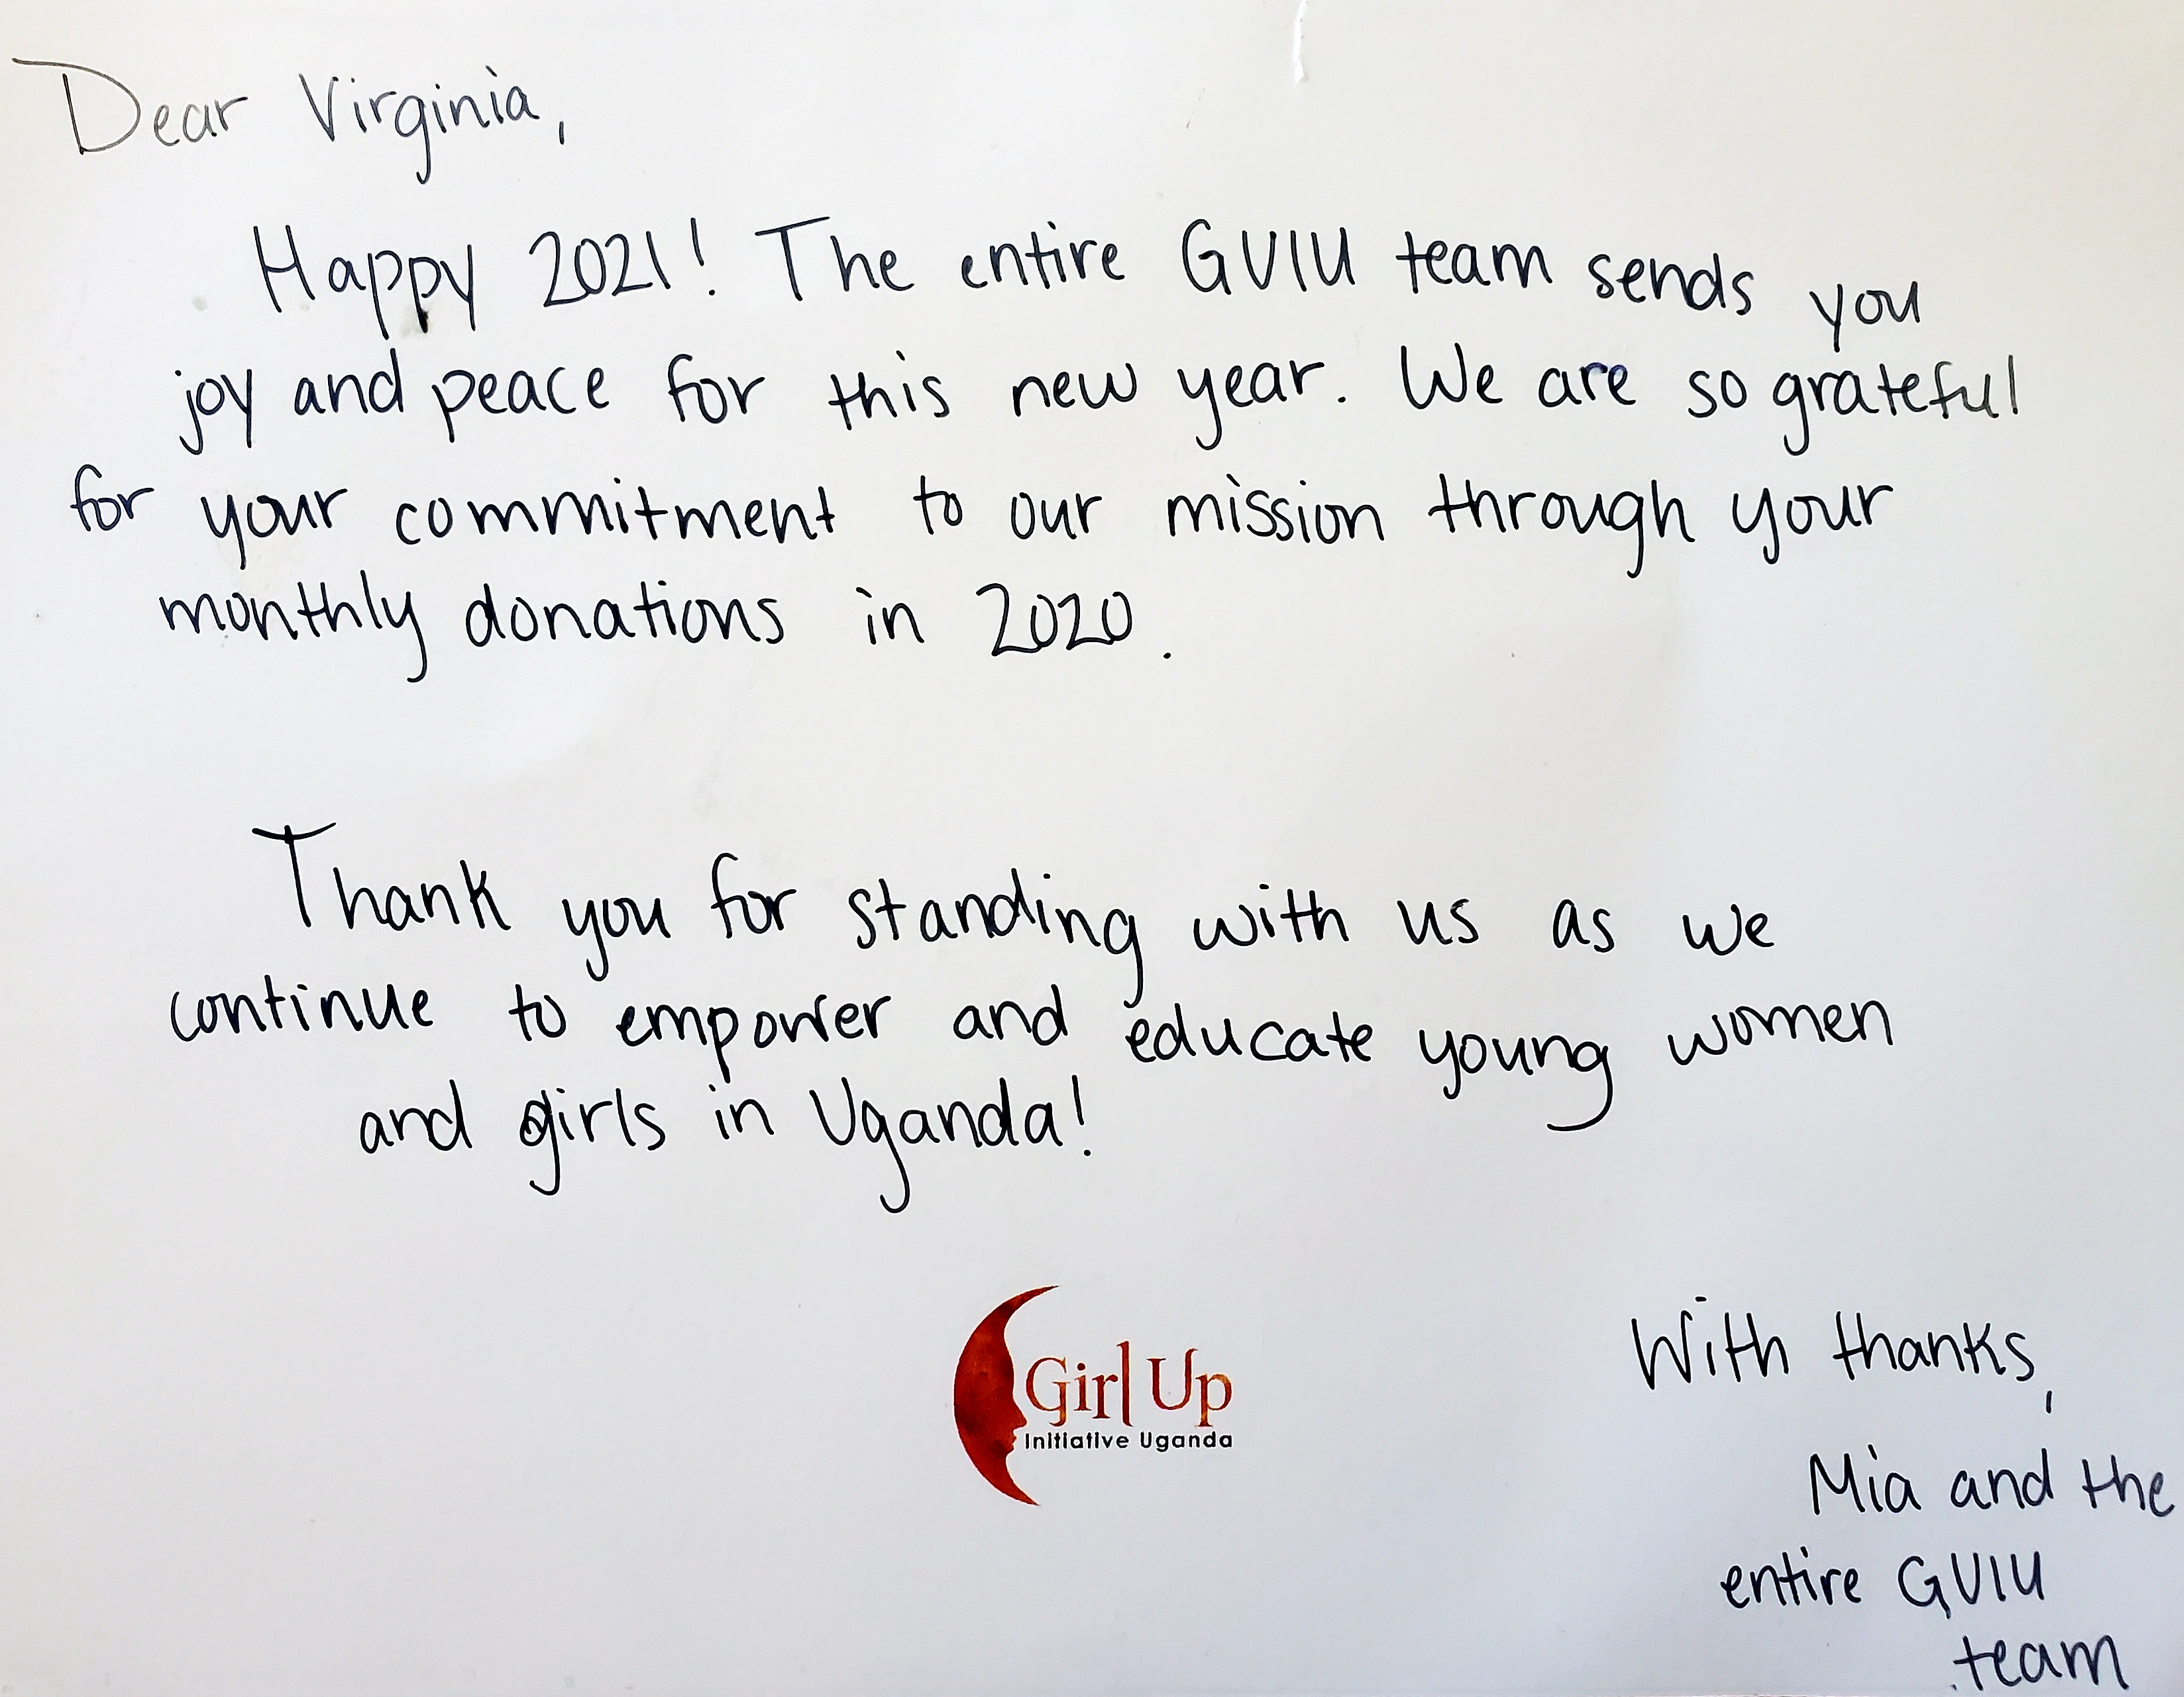 Dear Virginia,
Happy 2021! The entire GUIU team sends you
joy and peace for this new year. We are so grateful
for your commitment to our mission through your
monthly donations in 2020.
Thank you for standing with us as we
continue to empower and educate young women
and girls in Uganda!
Girl Up
Initiative Uganda
With thanks,
Mia and the
entire GUIU
team